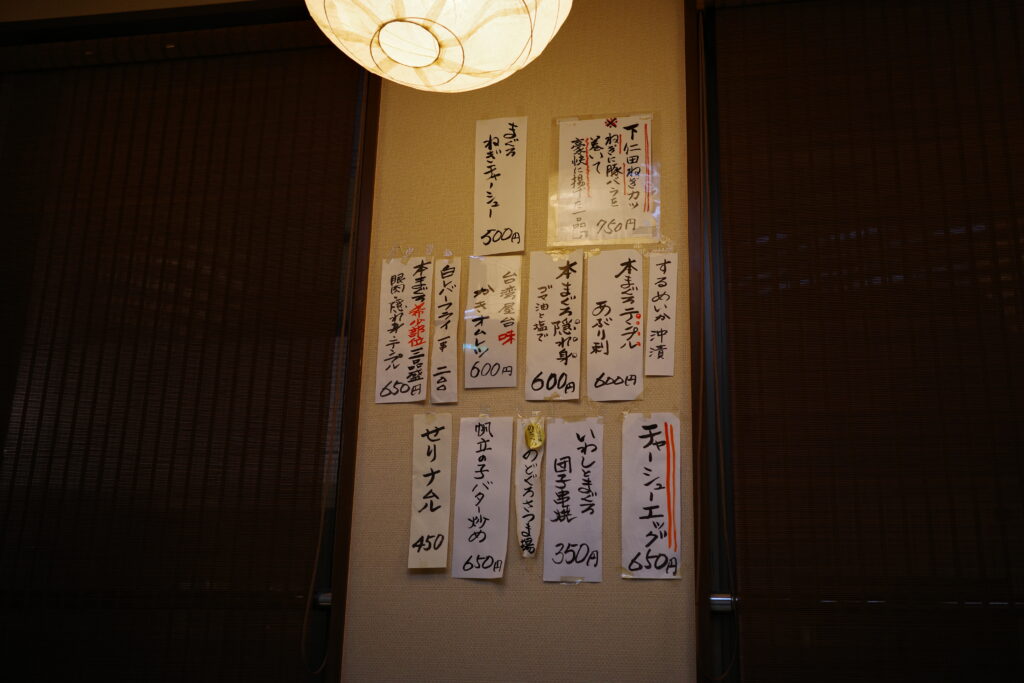 下仁田ねぎカツ
※ねぎに豚バラを
巻いて
豪快に揚げた一品
750円
まぐろ
ねぎチャーシュー
500円
するめいか沖漬
本まぐろテンプル
あぶり刺
600円
本まぐろ隠れ身
ゴマ油と塩で
600円
台湾屋台味
かきオムレツ
600円
白レバーフライ一本二〇〇
本まぐろ希少部位三品盛
眼肉・隠れ身・テンプル
650円
チャーシューエッグ
650円
いわしとまぐろ
団子串焼
350円
のどぐろさつま揚
帆立の子バター炒め
650円
せりナムル
450